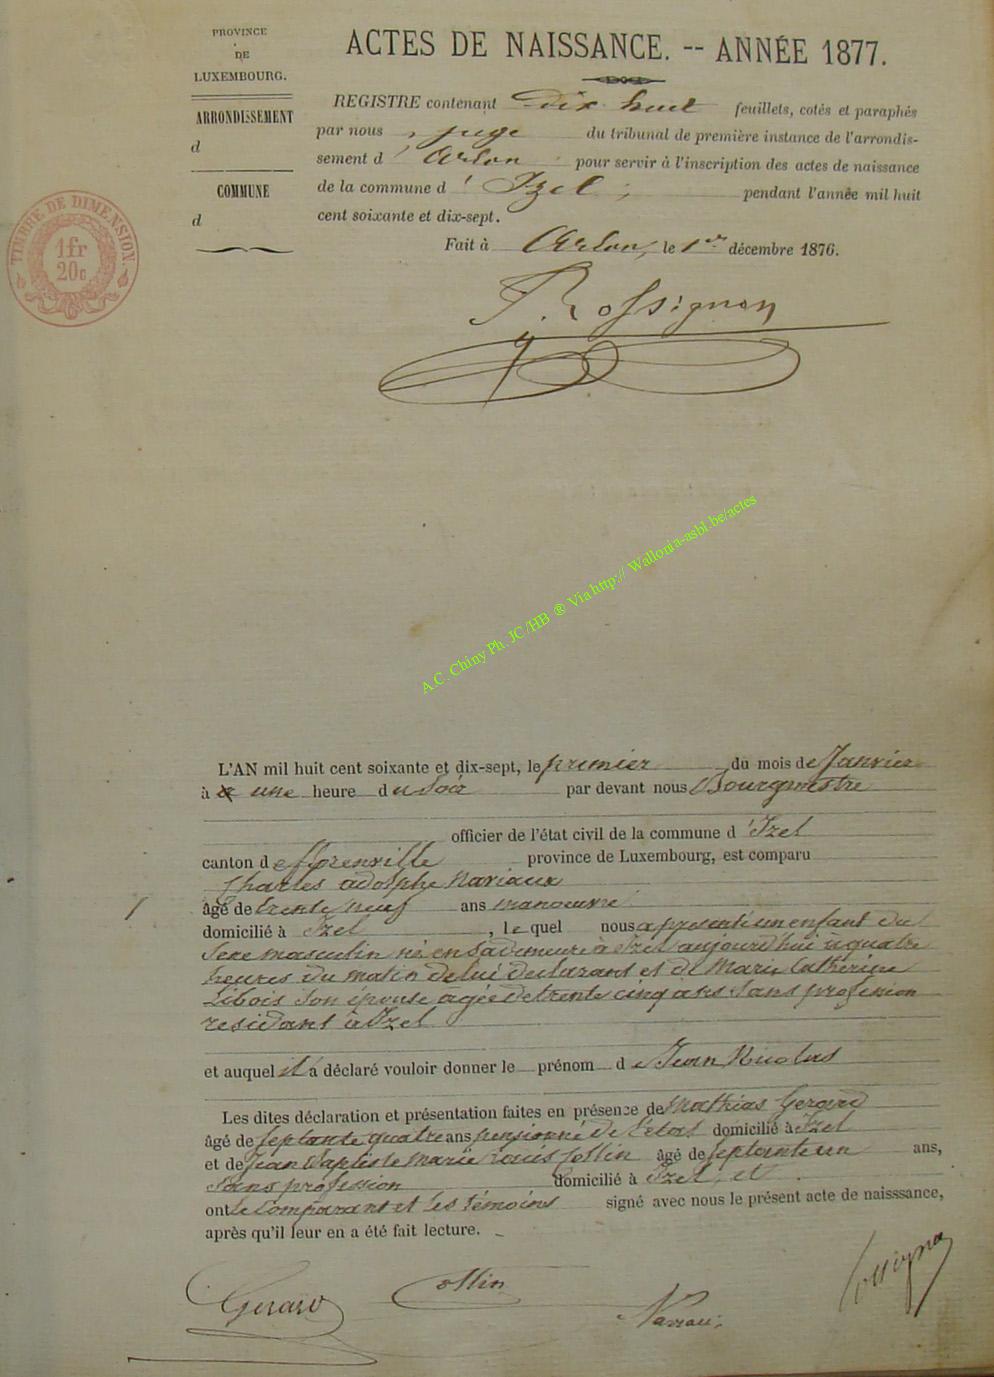 PROVINCE
DE
LUXEMBOURG.
ARRONDISSEMENT
d
COMMUNE
d
TIMBRE DE DIMENSION.
1fr
20c
ACTES DE NAISSANCE. -- ANNÉE 1877.
REGISTRE contenant Dix huit feuillets, cotés et paraphés
par nous, juge du tribunal de première instance de l'arrondis-
sement d'Arlon pour servir à l'inscription des actes de naissance
de la commune d'Izel, pendant l'année mil huit
cent soixante et dix-sept.
Fait à Arlon, le 1er décembre 1876.
Rossignon
A.C. Chiny Ph. JC/HB ® Via http:// Wallonia-asbl.be/actes
L'AN mil huit cent soixante et dix-sept, le premier du mois de Janvier
à une heure du Soir par devant nous Bourgmestre
officier de l'état civil de la commune d'Izel
canton de florenville province de Luxembourg, est comparu
Charles adolphe Nariaux
1 âgé de trente neuf ans manoeuvre
domicilié à Izel, lequel nous a présenté un enfant du
Sexe masculin né en sa demeure à Izel aujourd'hui à quatre
heures du matin de lui déclarant et de Marie Catherine
Libois son épouse agée de trente cinq ans Sans profession
residant à Izel
et auquel il a déclaré vouloir donner le prénom de Jean Nicolas
Les dites déclaration et présentation faites en présence de Mathias Gerard
âgé de Septante quatre ans pensionné de l'etat domicilié à Izel
et de Jean Baptiste Marie Louis Collin âgé de Septante un ans,
Sans profession domicilié à Izel, et
ont le comparant et les témoins signé avec nous le présent acte de naissance,
après qu'il leur en a été fait lecture.
Gerard
Collin
Nariaux